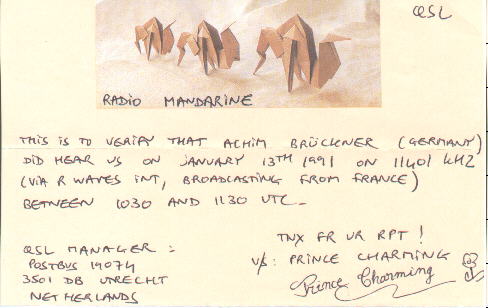 QSL
RADIO MANDARINE
THIS IS TO VERIFY THAT ACHIM BRÜCKNER (GERMANY)
DID HEAR US ON JANUARY 13TH 1991 ON 11401 kHz
(VIA R WAVES INT, BROADCASTING FROM FRANCE)
BETWEEN 1030 AND 1130 UTC.
TNX FR UR RPT!
QSL MANAGER:
V/S: PRINCE CHARMING
POSTBUS 19074
3501 DB UTRECHT
Prince Charming
NETHERLANDS